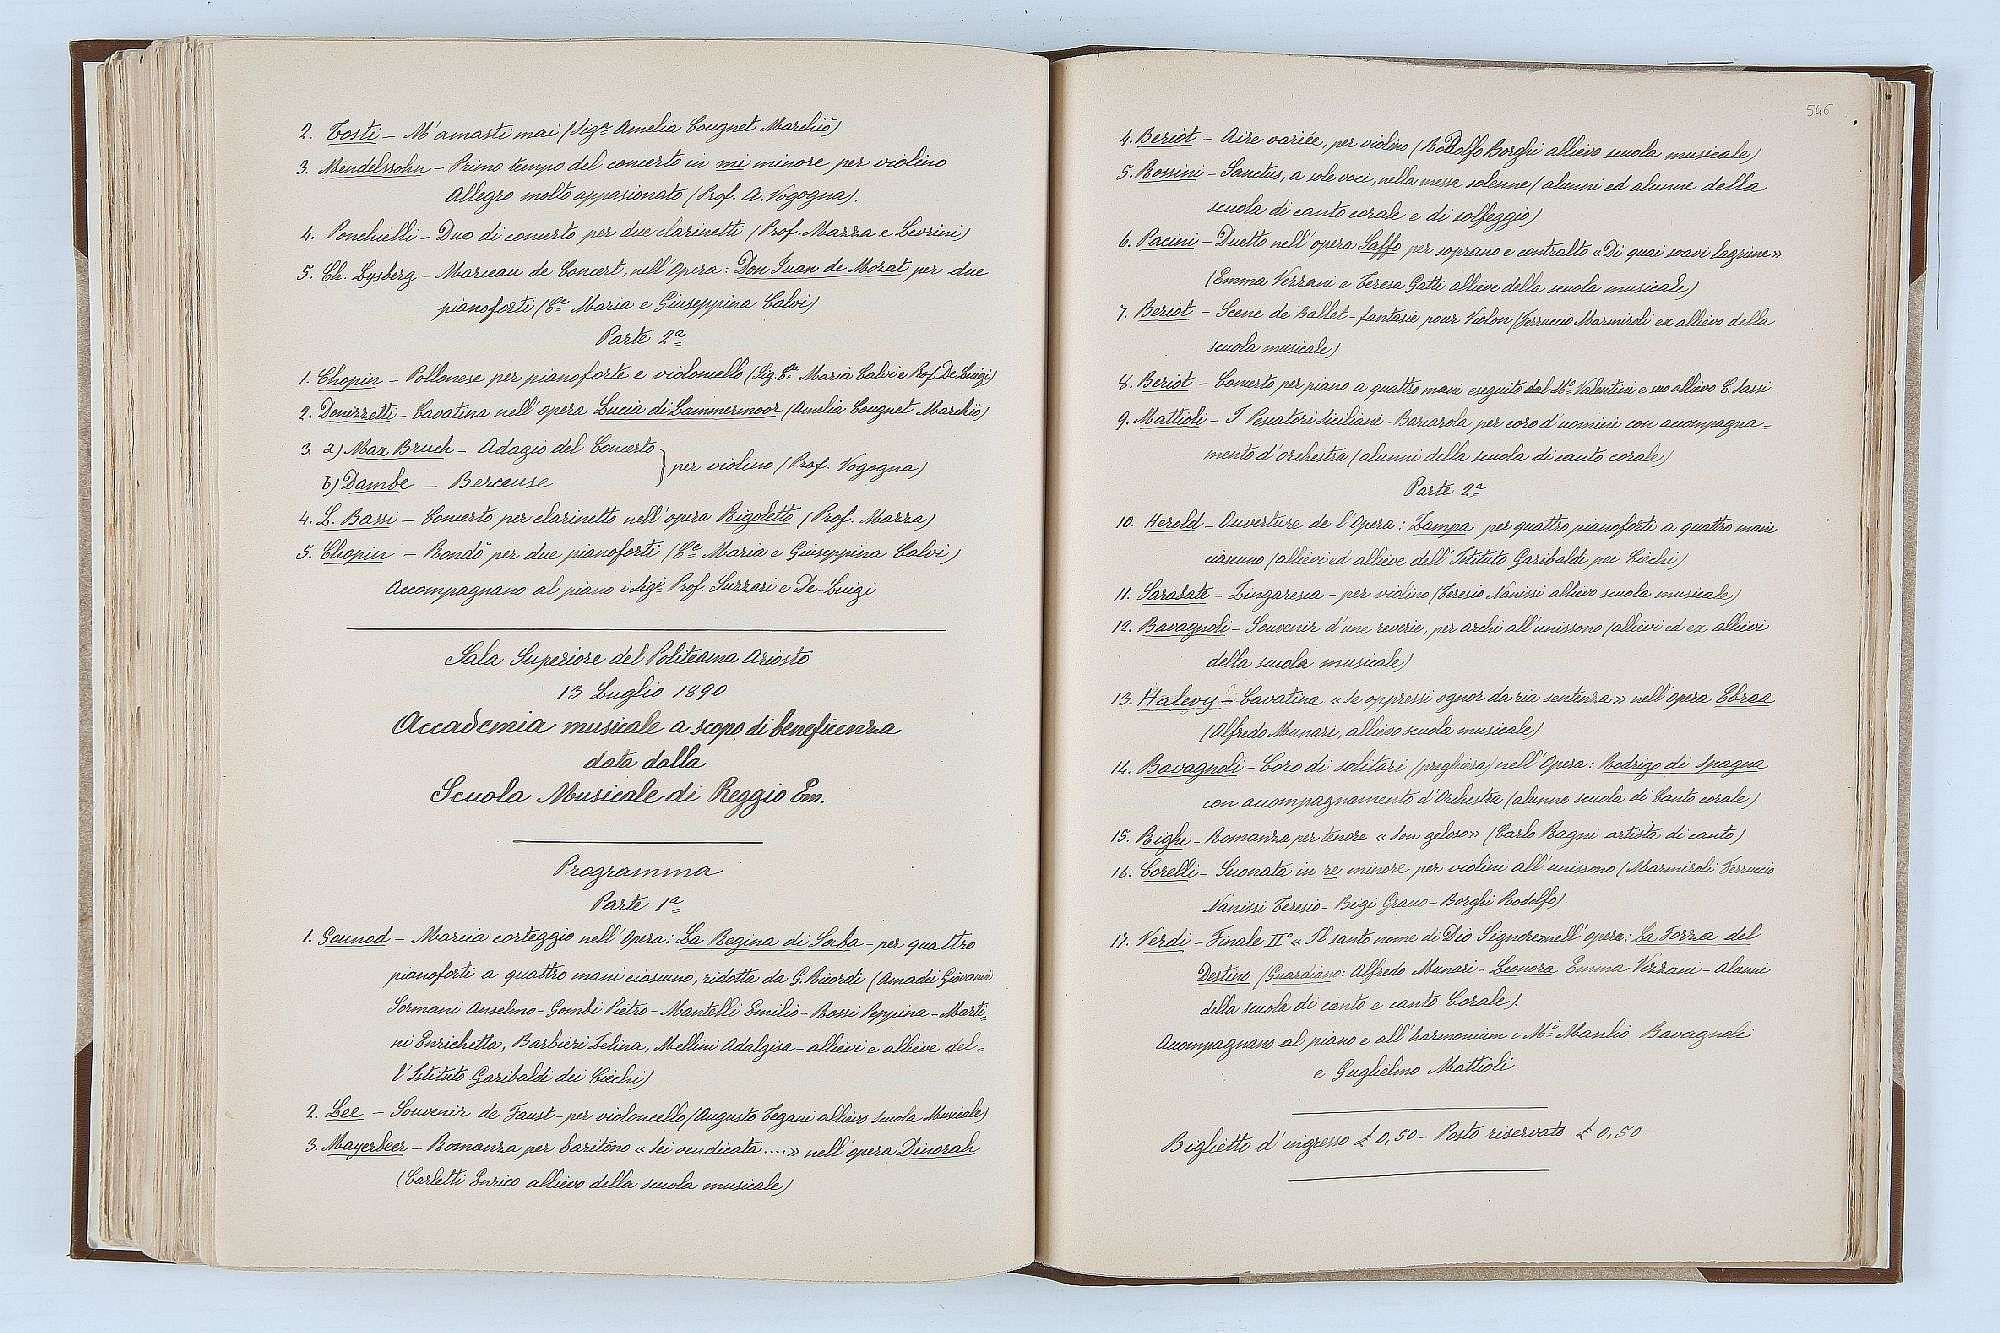 2. Tosti - M'amasti mai (Sigª Amelia Cougnet Marchiò)
3. Mendelssohn - Primo tempo del concerto in mi minore per violino
Allegro molto appassionato (Prof. A. Vogogna).
4. Ponchielli - Duo di concerto per due clarinetti (Prof. Mazza e Levrini)
5. Ch. Lysberg - Morceau de Concert, nell'Opera: Don Juan de Mozat per due
pianoforti (Cª Maria e Giuseppina Calvi)
Parte 2ª
1. Chopin - Pollonese per pianoforte e violoncello (Sig. Cª Maria Calvi e Prof. De Luigi)
2. Donizzetti - Cavatina nell'opera Lucia di Lammermoor (Amelia Cougnet Marchiò)
3. a) Max Bruch - Adagio del Concerto
b) Dambe - Berceuse
per violino (Prof. Vogogna)
4. L. Bassi - Concerto per clarinetto nell'opera Rigoletto (Prof. Mazza)
5. Chopin - Rondò per due pianoforti (Cª Maria e Giuseppina Calvi)
Accompagnano al piano i Sigⁱ Prof. Suzzari e De-Luigi
Sala Superiore del Politeama Ariosto
13 Luglio 1890
Accademia musicale a scopo di beneficenza
data dalla
Scuola Musicale di Reggio Em.
Programma
Parte 1ª
1. Gounod - Marcia corteggio nell'Opera: La Regina di Saba - per quattro
pianoforti a quattro mani ciascuno, ridotta da G. Ricordi (Amadei Giovanni
Sormani Anselmo - Gombi Pietro - Mantelli Emilio - Rossi Peppina - Marti-
ni Enrichetta, Barbieri Zelina, Mellini Adalgisa - allievi e allieve del-
l'Istituto Garibaldi dei Ciechi)
2. Lee - Souvenir de Faust - per violoncello (Augusto Tegani allievo Scuola Musicale)
3. Mayerbeer - Romanza per baritono « Sei vendicata .... » nell'opera Dinorah
(Carletti Enrico allievo della scuola musicale)
546
4. Beriot - Aire variée, per violino (Rodolfo Borghi allievo scuola musicale)
5. Rossini - Sanctus, a sole voci, nella messa solenne (alunni ed alunne della
scuola di canto corale e di solfeggio)
6. Pacini - Duetto nell'opera Saffo per soprano e contralto « Di quai soavi lagrime »
(Emma Vezzani e Teresa Gatti allieve della scuola musicale)
7. Beriot - Scene de Ballet - fantasie pour Violon (Ferruccio Marmiroli ex allievo della
scuola musicale)
8. Beriot - Concerto per piano a quattro mani eseguito dal Mº Valentini e suo allievo C. Sassi
9. Mattioli - I Pescatori Siciliani - Barcarola per coro d'uomini con accompagna-
mento d'orchestra (alunni della scuola di canto corale)
Parte 2ª
10. Herold - Ouverture de l'Opera: Zampa per quattro pianoforti a quattro mani
ciascuno (allievi ed allieve dell'Istituto Garibaldi pei Ciechi)
11. Sarasate - Zingaresca - per violino (Teresio Nanissi allievo scuola musicale)
12. Bavagnoli - Souvenir d'une reverie, per archi all'unissono (allievi ed ex allievi
della scuola musicale)
13. Halevy - Cavatina « Se oppressi ognor da ria sentenza » nell'opera Ebrea
(Alfredo Munari, allievo scuola musicale)
14. Bavagnoli - Coro di solitari (preghiera) nell'Opera: Rodrigo di Spagna
con accompagnamento d'Orchestra (alunne scuola di Canto corale)
15. Bighi - Romanza per tenore « Son geloso » (Carlo Ragni artista di canto)
16. Corelli - Suonata in re minore per violini all'unissono (Marmiroli Ferruccio
Nanissi Teresio - Bizi Grauo - Borghi Rodolfo)
17. Verdi - Finale IIº « Il santo nome di Dio Signore » nell'opera: La Forza del
Destino (Guardiano: Alfredo Munari - Leonora Emma Vezzani - Alunni
della scuola di canto e canto Corale).
Accompagnano al piano e all'harmonium i Mⁱ Manlio Bavagnoli
e Guglielmo Mattioli
Biglietto d'ingresso £ 0,50 - Posto riservato £ 0,50